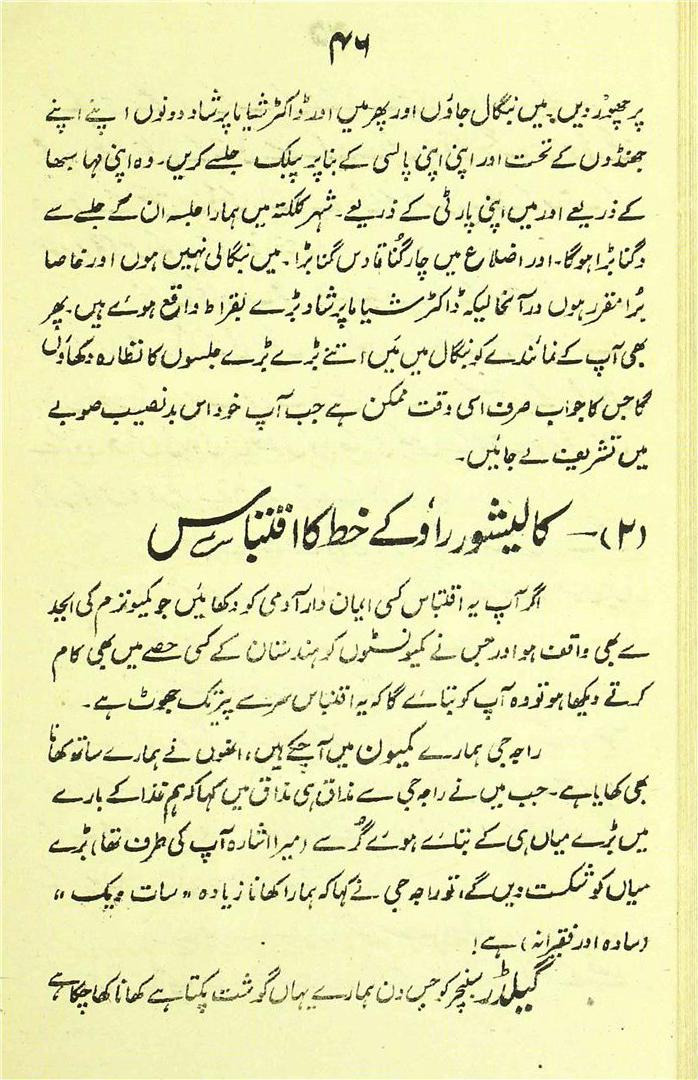 ۴۶
پر چھوڑ دیں۔ میں بنگال جاؤں اور پھر میں اور ڈاکٹر شیاما پرشاد دونوں اپنے اپنے
جھنڈوں کے تحت اور اپنی اپنی پالسی کے بنا پر پبلک جلسے کریں۔ وہ اپنی مہا سبھا
کے ذریعے اور میں اپنی پارٹی کے ذریعے۔ شہر کلکتہ میں ہمارا جلسہ ان کے جلسے سے
دگنا بڑا ہوگا۔ اور اضلاع میں چار گُنا تا دس گنا بڑا۔ میں بنگالی نہیں ہوں اور خاصا
بُرا مقرر ہوں در آنحالیکہ ڈاکٹر شیاما پرشاد بڑے بقراط واقع ہوئے ہیں۔ پھر
بھی آپ کے نمائندے کو بنگال میں مَیں اتنے بڑے بڑے جلسوں کا نظارہ دکھاؤں
گا جس کا جواب صرف اسی وقت ممکن ہے جب آپ خود اس بد نصیب صوبے
میں تشریف لے جائیں۔
(۲) — کالیشور راؤ کے خط کا اقتباس
اگر آپ یہ اقتباس کسی ایمان دار آدمی کو دکھائیں جو کمیونزم کی ابجد
سے بھی واقف ہو اور جس نے کمیونسٹوں کو ہندستان کے کسی حصے میں بھی کام
کرتے دیکھا ہو تو وہ آپ کو بتائے گا کہ یہ اقتباس سرے پیر تک جھوٹ ہے۔
راجہ جی ہمارے کمیون میں آ چکے ہیں، انھوں نے ہمارے ساتھ کھانا
بھی کھایا ہے۔ جب میں نے راجہ جی سے مذاق ہی مذاق میں کہا کہ ہم غذا کے بارے
میں بڑے میاں ہی کے بتائے ہوئے گُر سے (میرا اشارہ آپ کی طرف تھا) بڑے
میاں کو شکست دیں گے، تو راجہ جی نے کہا کہ ہمارا کھانا زیادہ "سات ویک"
(سادہ اور فقیرانہ) ہے!
گیلڈر سنیچر کو جس دن ہمارے یہاں گوشت پکتا ہے کھانا کھا چکا ہے